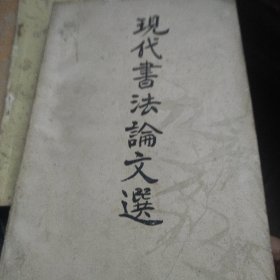 現代書法論文選